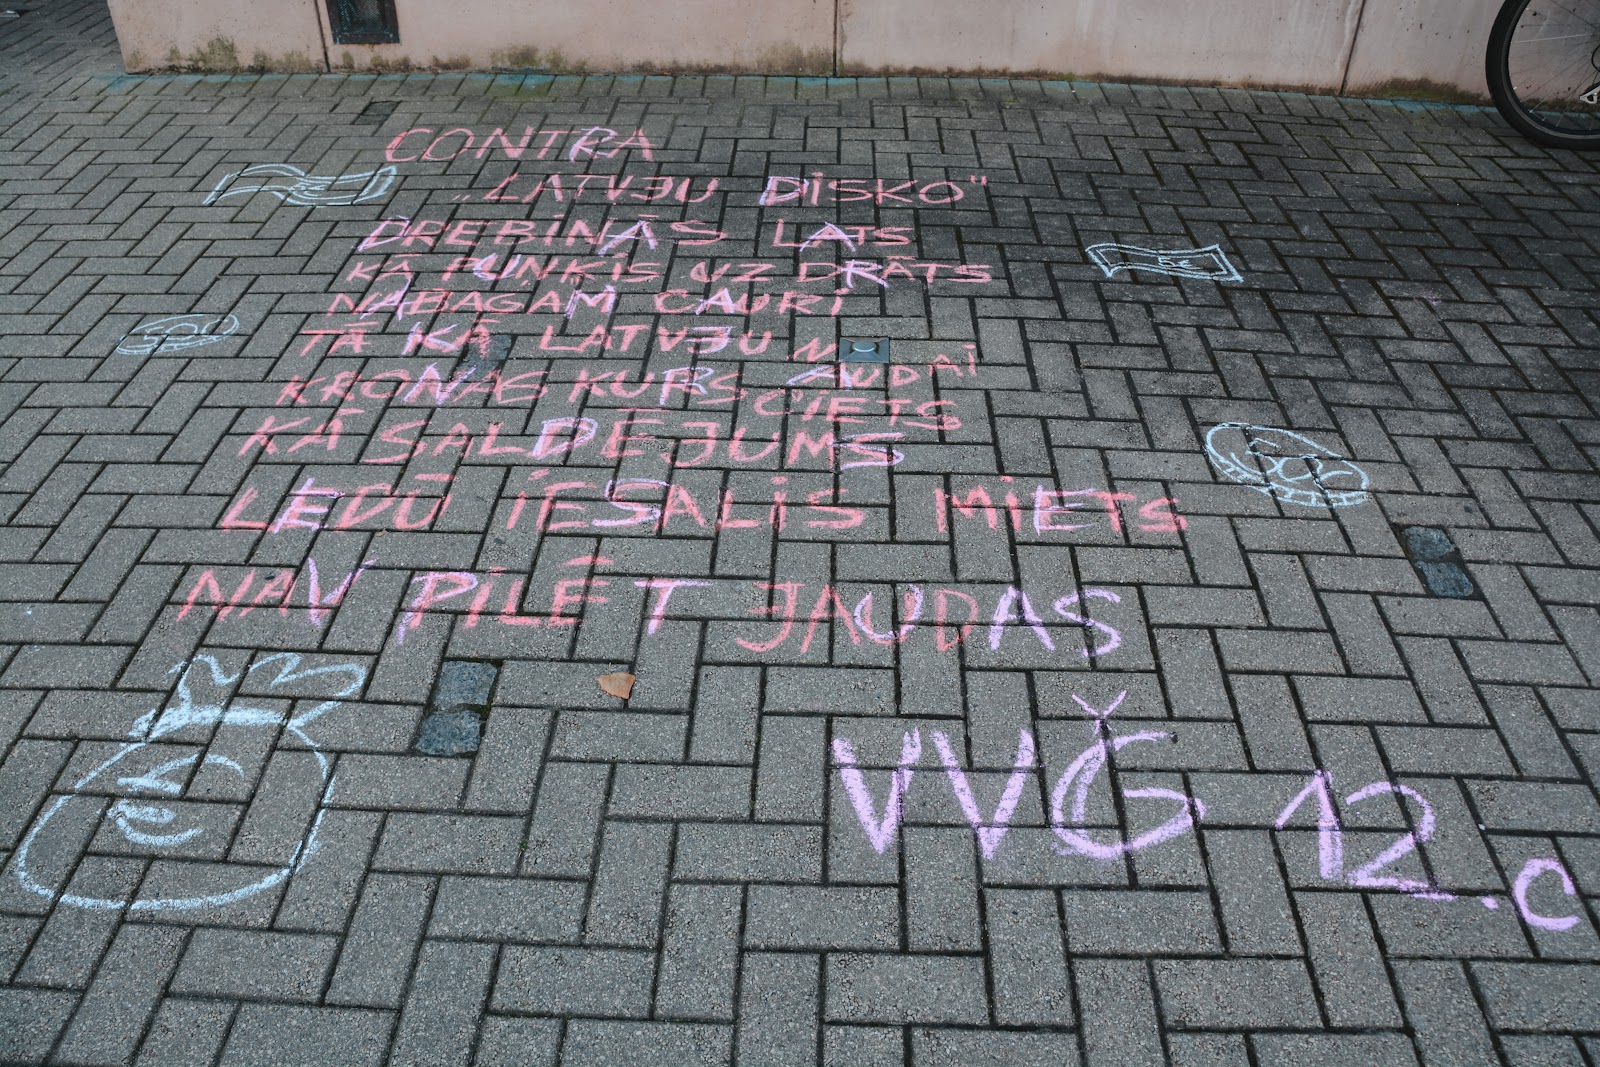 CONTRA
„LATVJU DISKO"
DREBINĀS LATS
KĀ PUŅĶIS UZ DRĀTS
NABAGAM CAURI
TĀ KĀ LATVJU NAUDAI
KRONAS KURS CIETS
KĀ SALDĒJUMS
LEDŪ IESALIS MIETS
NAV PILĒT JAUDAS
VVǦ 12.c
5€
50c
€